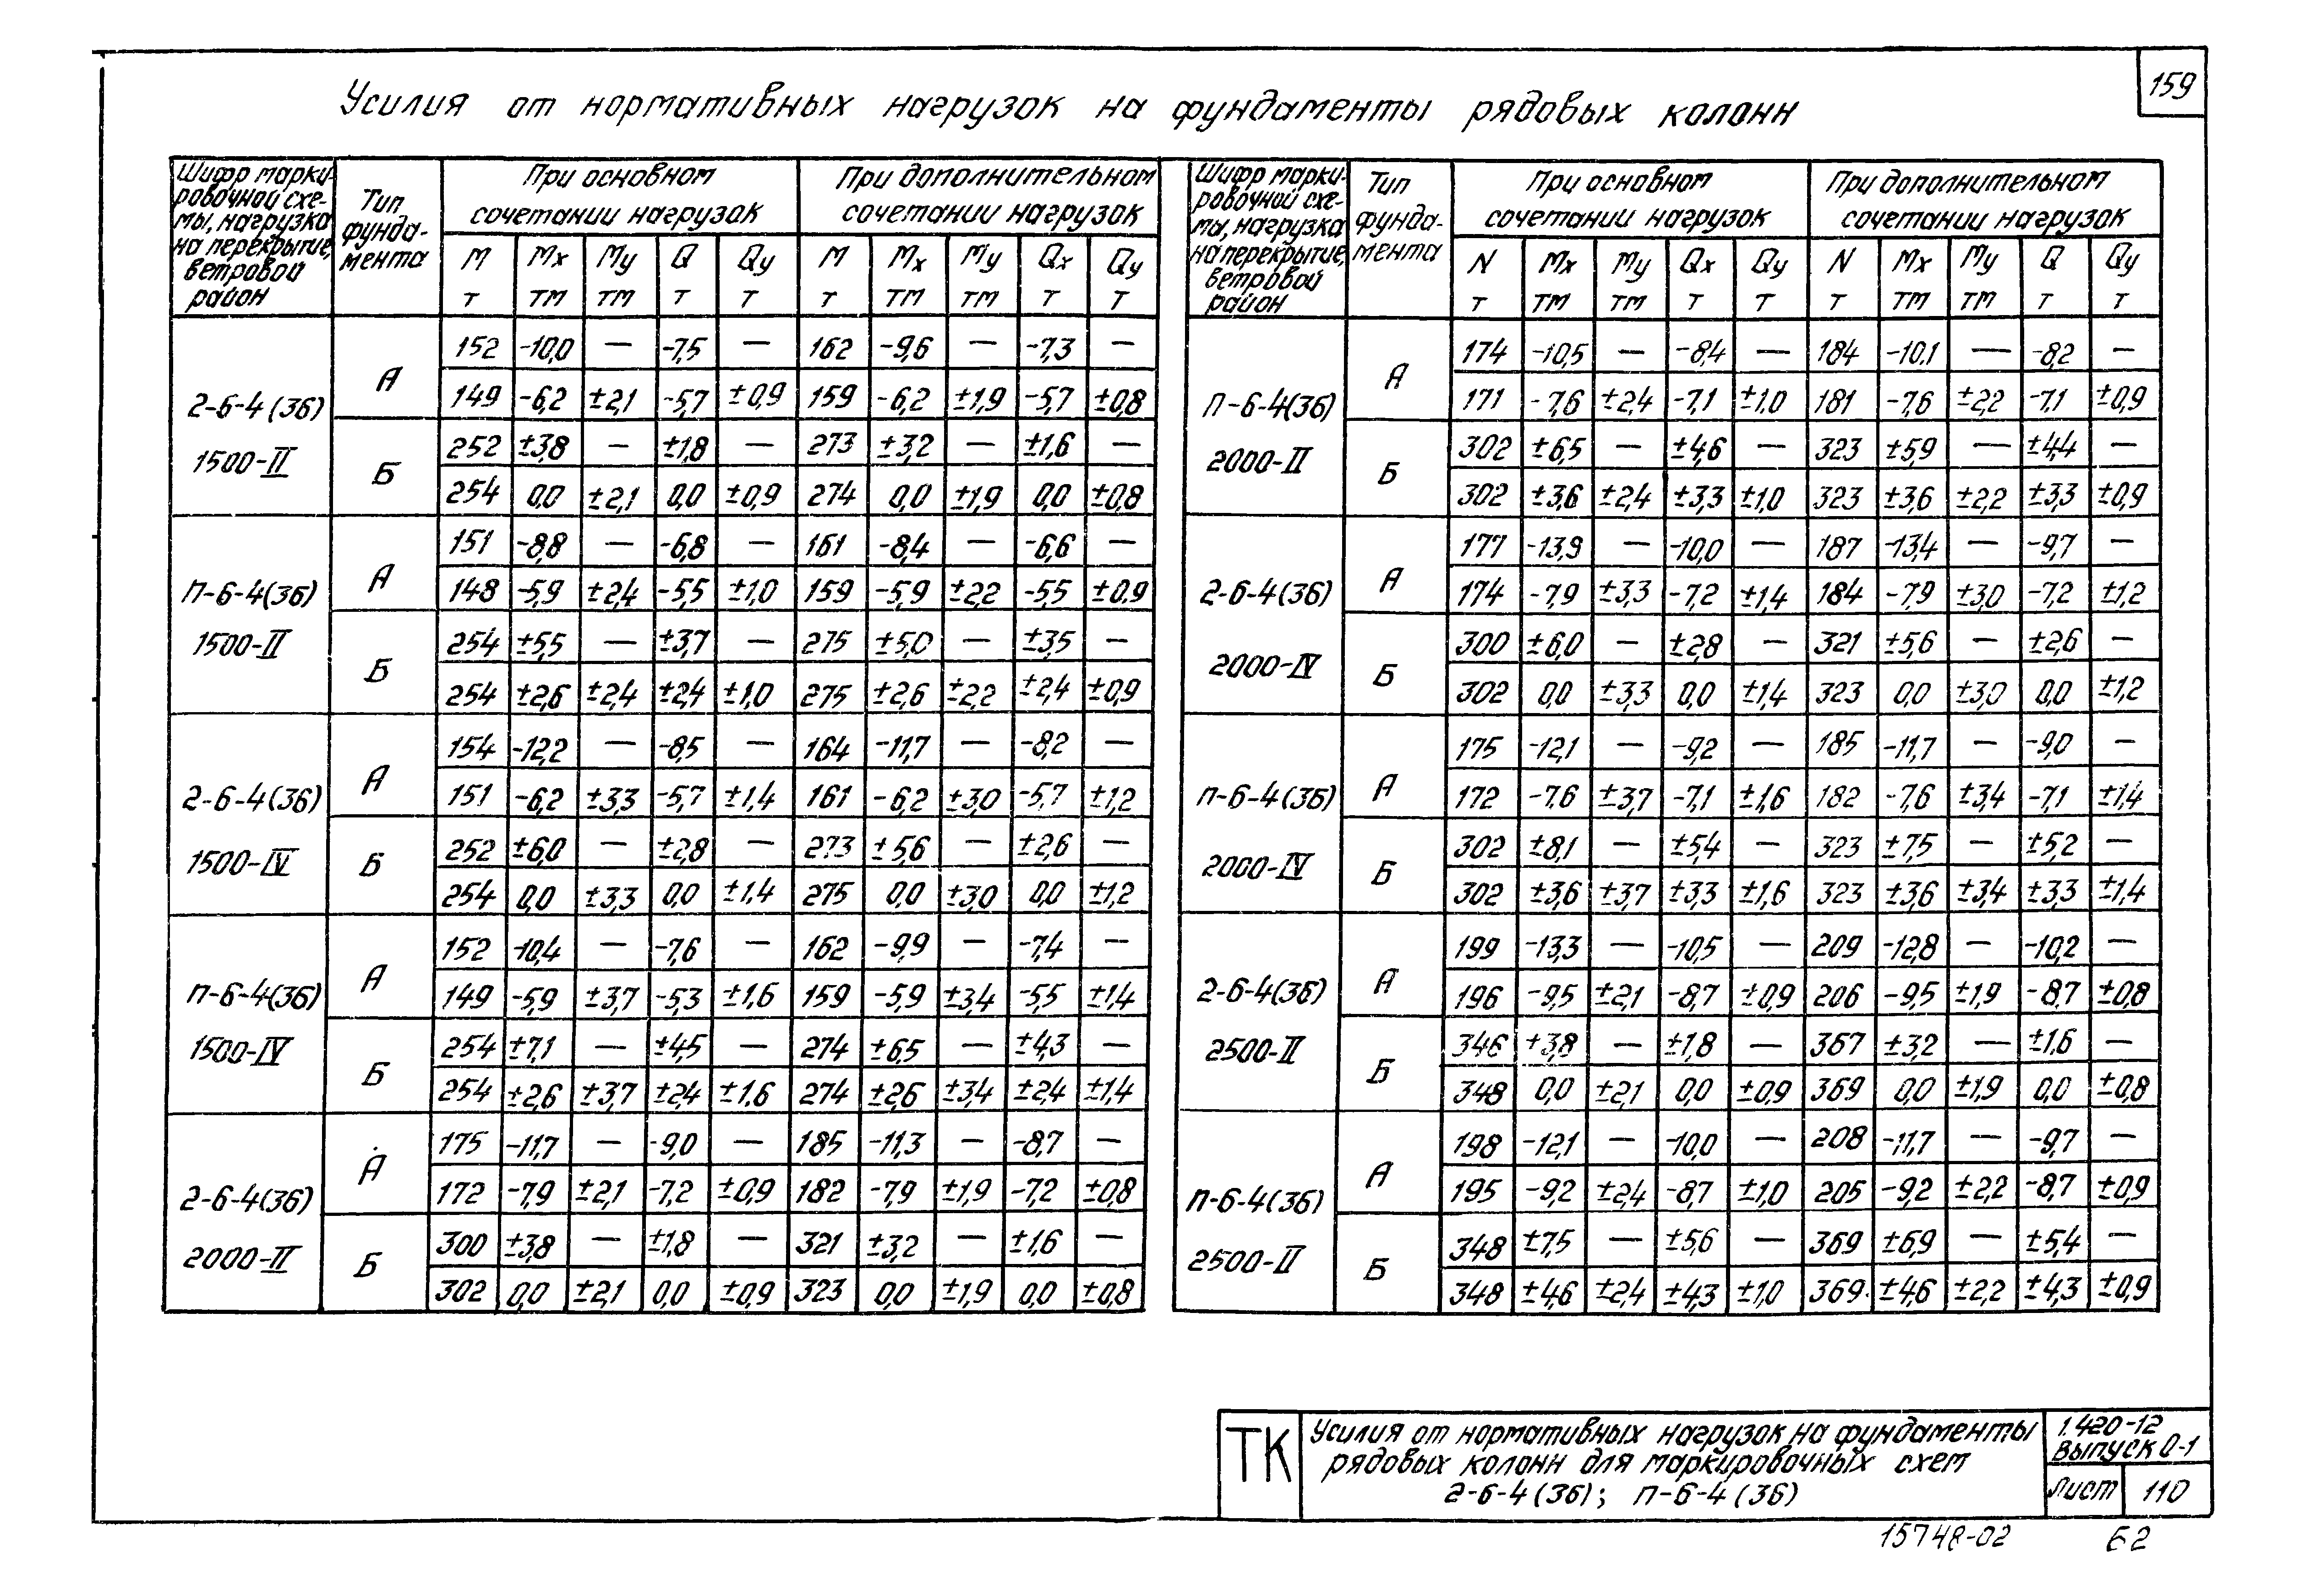 159
Усилия от нормативных нагрузок на фундаменты рядовых колонн
Шифр марки-
ровочной схе-
мы, нагрузка
на перекрытие,
ветровой
район
Тип
фунда-
мента
При основном
сочетании нагрузок
При дополнительном
сочетании нагрузок
М Мх Му Q Qу М Мх Му Qх Qу
т тм тм т т т тм тм т т
2-6-4(36)
1500-II
А
152 -10,0 — -7,5 — 162 -9,6 — -7,3 —
149 -6,2 ±2,1 -5,7 ±0,9 159 -6,2 ±1,9 -5,7 ±0,8
Б
252 ±3,8 — ±1,8 — 273 ±3,2 — ±1,6 —
254 0,0 ±2,1 0,0 ±0,9 274 0,0 ±1,9 0,0 ±0,8
П-6-4(36)
1500-II
А
151 -8,8 — -6,8 — 161 -8,4 — -6,6 —
148 -5,9 ±2,4 -5,5 ±1,0 159 -5,9 ±2,2 -5,5 ±0,9
Б
254 ±5,5 — ±3,7 — 275 ±5,0 — ±3,5 —
254 ±2,6 ±2,4 ±2,4 ±1,0 275 ±2,6 ±2,2 ±2,4 ±0,9
2-6-4(36)
1500-IV
А
154 -12,2 — -8,5 — 164 -11,7 — -8,2 —
151 -6,2 ±3,3 -5,7 ±1,4 161 -6,2 ±3,0 -5,7 ±1,2
Б
252 ±6,0 — ±2,8 — 273 ±5,6 — ±2,6 —
254 0,0 ±3,3 0,0 ±1,4 275 0,0 ±3,0 0,0 ±1,2
П-6-4(36)
1500-IV
А
152 -10,4 — -7,6 — 162 -9,9 — -7,4 —
149 -5,9 ±3,7 -5,3 ±1,6 159 -5,9 ±3,4 -5,5 ±1,4
Б
254 ±7,1 — ±4,5 — 274 ±6,5 — ±4,3 —
254 ±2,6 ±3,7 ±2,4 ±1,6 274 ±2,6 ±3,4 ±2,4 ±1,4
2-6-4(36)
2000-II
А
175 -11,7 — -9,0 — 185 -11,3 — -8,7 —
172 -7,9 ±2,1 -7,2 ±0,9 182 -7,9 ±1,9 -7,2 ±0,8
Б
300 ±3,8 — ±1,8 — 321 ±3,2 — ±1,6 —
302 0,0 ±2,1 0,0 ±0,9 323 0,0 ±1,9 0,0 ±0,8
Шифр марки-
ровочной схе-
мы, нагрузка
на перекрытие,
ветровой
район
Тип
фунда-
мента
При основном
сочетании нагрузок
При дополнительном
сочетании нагрузок
N Мх Му Qх Qу N Мх Му Q Qу
т тм тм т т т тм тм т т
П-6-4(36)
2000-II
А
174 -10,5 — -8,4 — 184 -10,1 — -8,2 —
171 -7,6 ±2,4 -7,1 ±1,0 181 -7,6 ±2,2 -7,1 ±0,9
Б
302 ±6,5 — ±4,6 — 323 ±5,9 — ±4,4 —
302 ±3,6 ±2,4 ±3,3 ±1,0 323 ±3,6 ±2,2 ±3,3 ±0,9
2-6-4(36)
2000-IV
А
177 -13,9 — -10,0 — 187 -13,4 — -9,7 —
174 -7,9 ±3,3 -7,2 ±1,4 184 -7,9 ±3,0 -7,2 ±1,2
Б
300 ±6,0 — ±2,8 — 321 ±5,6 — ±2,6 —
302 0,0 ±3,3 0,0 ±1,4 323 0,0 ±3,0 0,0 ±1,2
П-6-4(36)
2000-IV
А
175 -12,1 — -9,2 — 185 -11,7 — -9,0 —
172 -7,6 ±3,7 -7,1 ±1,6 182 -7,6 ±3,4 -7,1 ±1,4
Б
302 ±8,1 — ±5,4 — 323 ±7,5 — ±5,2 —
302 ±3,6 ±3,7 ±3,3 ±1,6 323 ±3,6 ±3,4 ±3,3 ±1,4
2-6-4(36)
2500-II
А
199 -13,3 — -10,5 — 209 -12,8 — -10,2 —
196 -9,5 ±2,1 -8,7 ±0,9 206 -9,5 ±1,9 -8,7 ±0,8
Б
346 ±3,8 — ±1,8 — 367 ±3,2 — ±1,6 —
348 0,0 ±2,1 0,0 ±0,9 369 0,0 ±1,9 0,0 ±0,8
П-6-4(36)
2500-II
А
198 -12,1 — -10,0 — 208 -11,7 — -9,7 —
195 -9,2 ±2,4 -8,7 ±1,0 205 -9,2 ±2,2 -8,7 ±0,9
Б
348 ±7,5 — ±5,6 — 369 ±6,9 — ±5,4 —
348 ±4,6 ±2,4 ±4,3 ±1,0 369 ±4,6 ±2,2 ±4,3 ±0,9
ТК
Усилия от нормативных нагрузок на фундаменты
рядовых колонн для маркировочных схем
2-6-4(36); П-6-4(36)
1.420-12
выпуск 0-1
Лист 110
15748-02 62